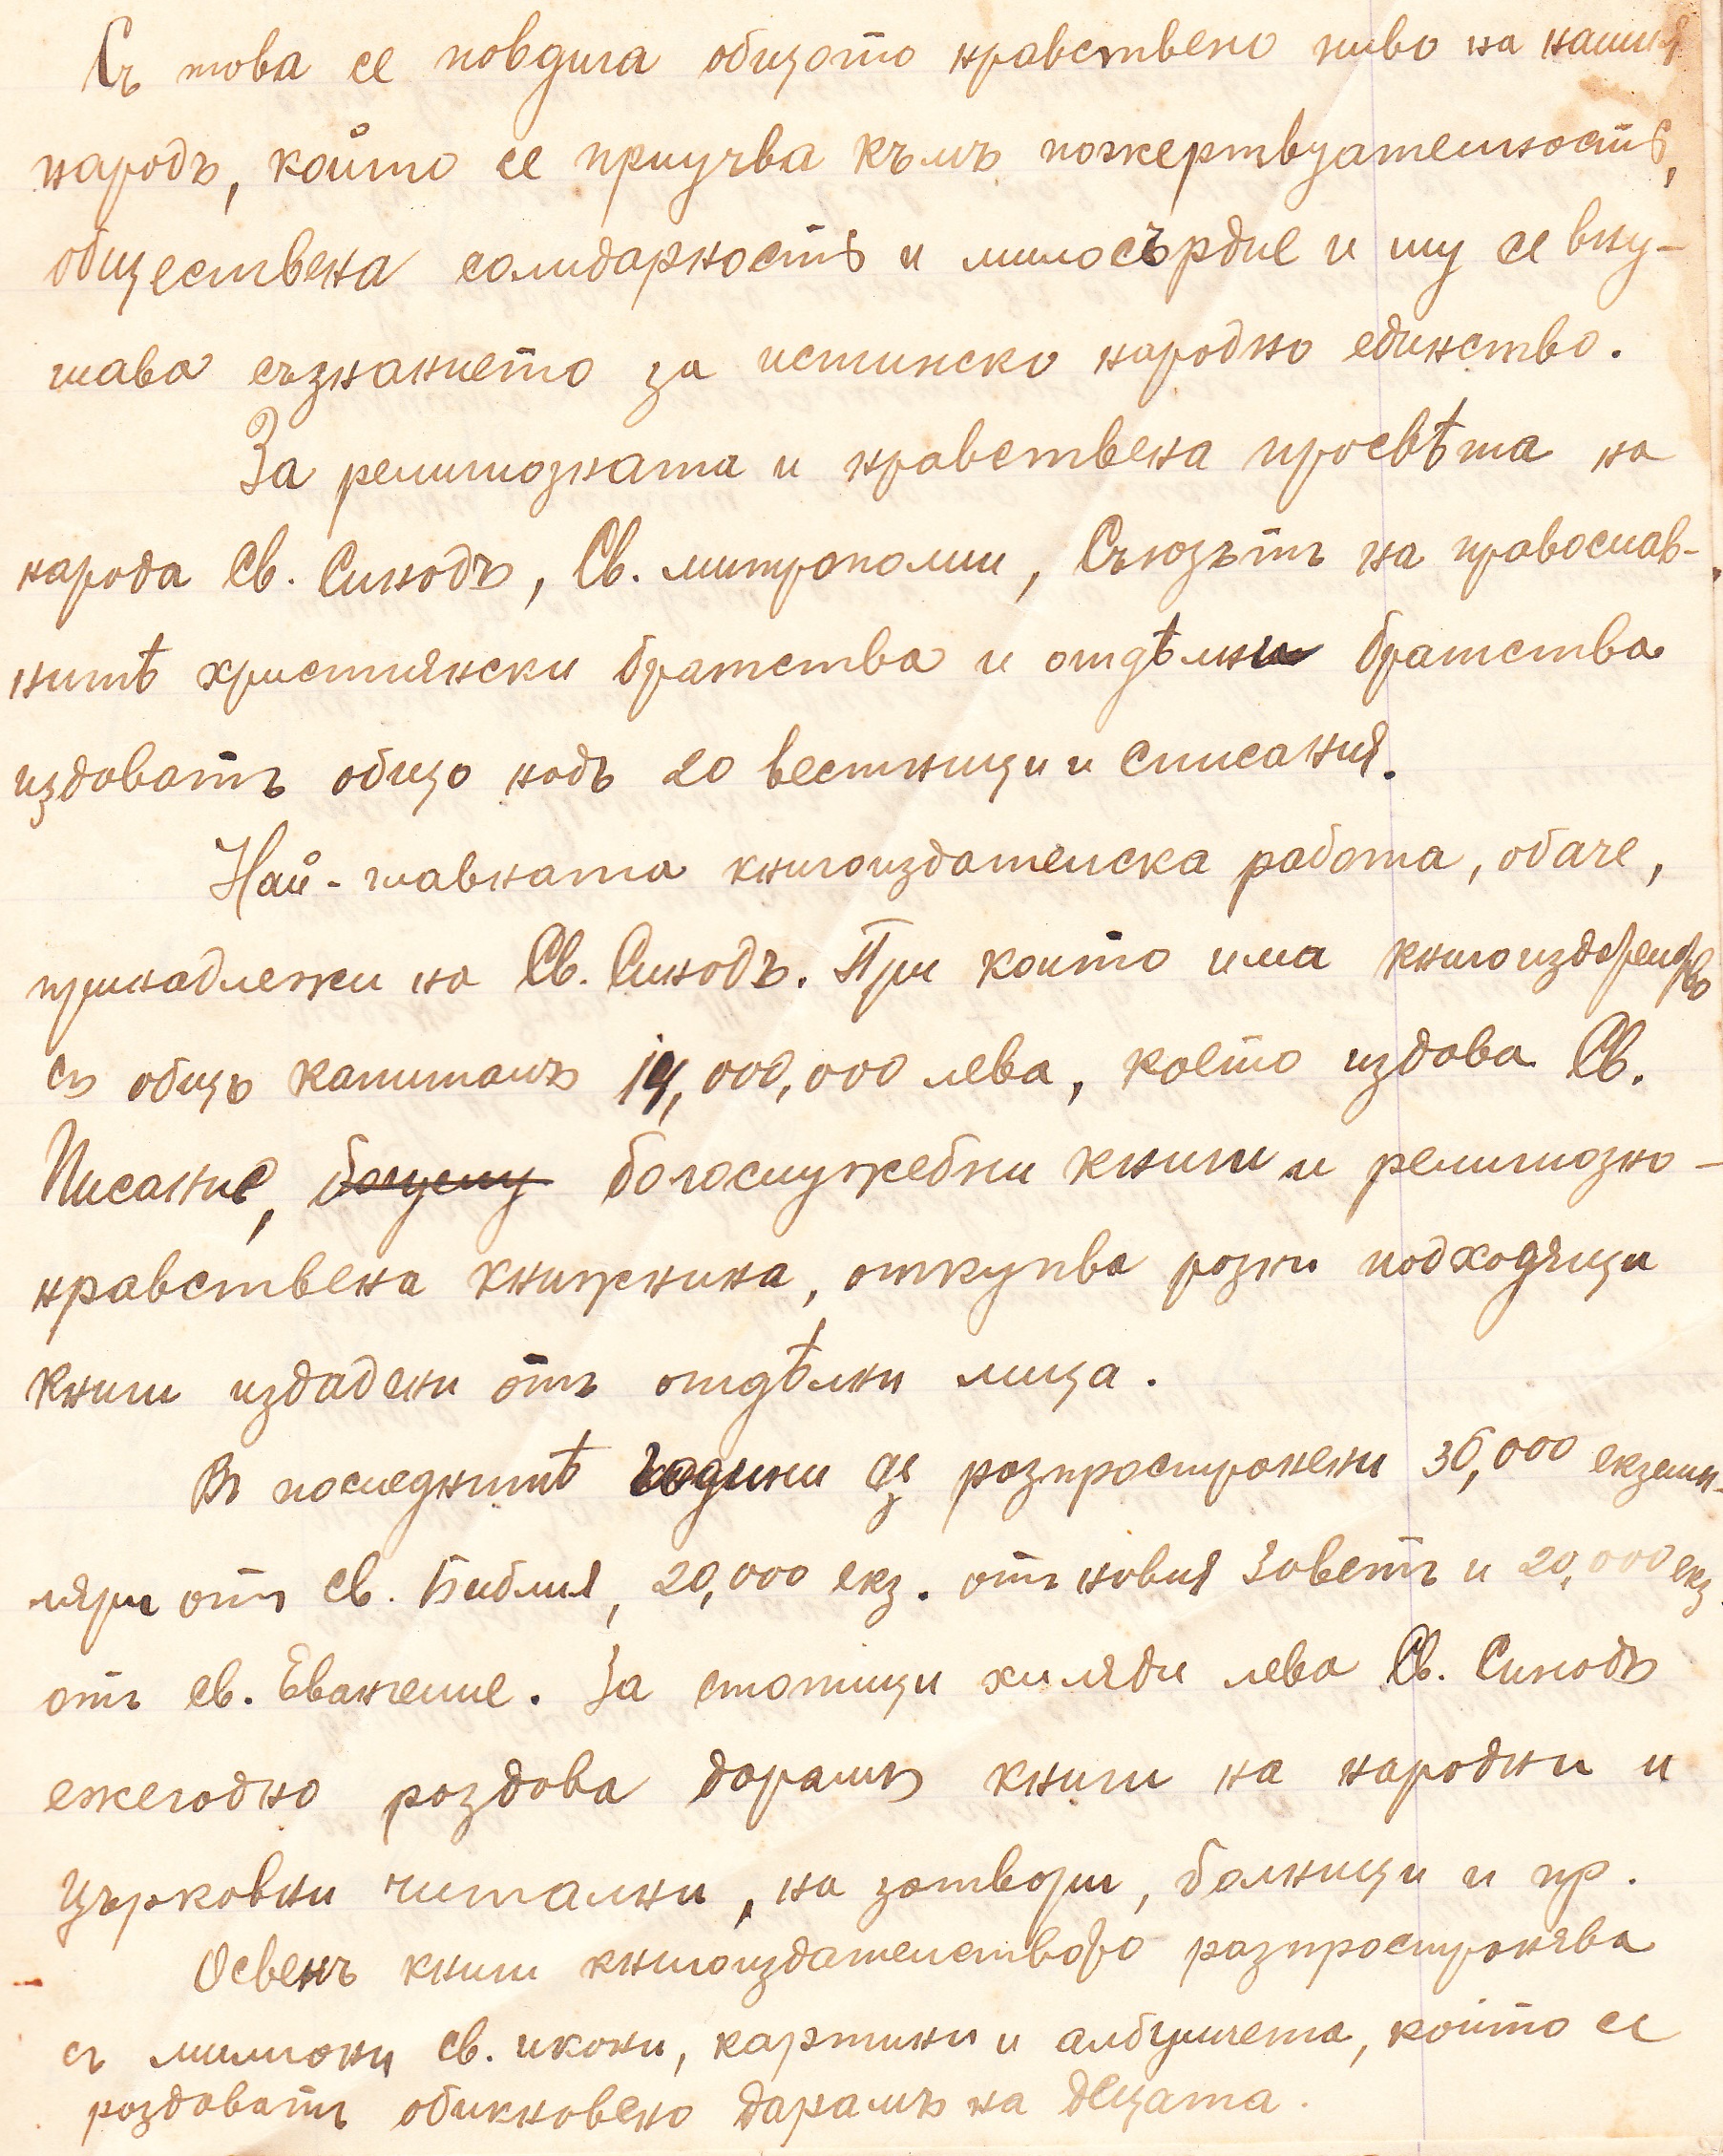 Съ това се повдига общото нравствено ниво на нашия
народъ, който се приучва къмъ пожертвувателность,
обществена солидарность и милосърдие и му се вну-
шава съзнанието за истинско народно единство.
За религиозната и нравствена просвѣта на
народа Св. Синодъ, Св. митрополии, Съюзътъ на православ-
нитѣ християнски братства и отдѣлни братства
издаватъ общо надъ 20 вестници и списания.
Най-главната книгоиздателска работа, обаче,
принадлежи на Св. Синодъ. При който има книгоиздателство
съ общъ капиталъ 14,000,000 лева, което издава Св.
Писание, богослужебни книги и религиозно-
нравствена книжнина, откупва разни подходящи
книги издадени отъ отдѣлни лица.
Въ последнитѣ години са разпространени 30,000 екземп-
ляри отъ Св. Библия, 20,000 екз. отъ новия Заветъ и 20,000 екз.
отъ св. Евангелие. За стотици хиляди лева Св. Синодъ
ежегодно раздава даромъ книги на народни и
църковни читални, на затвори, болници и пр.
Освенъ книги книгоиздателството разпространява
съ милиони св. икони, картини и албумчета, които се
раздаватъ обикновено даромъ на децата.